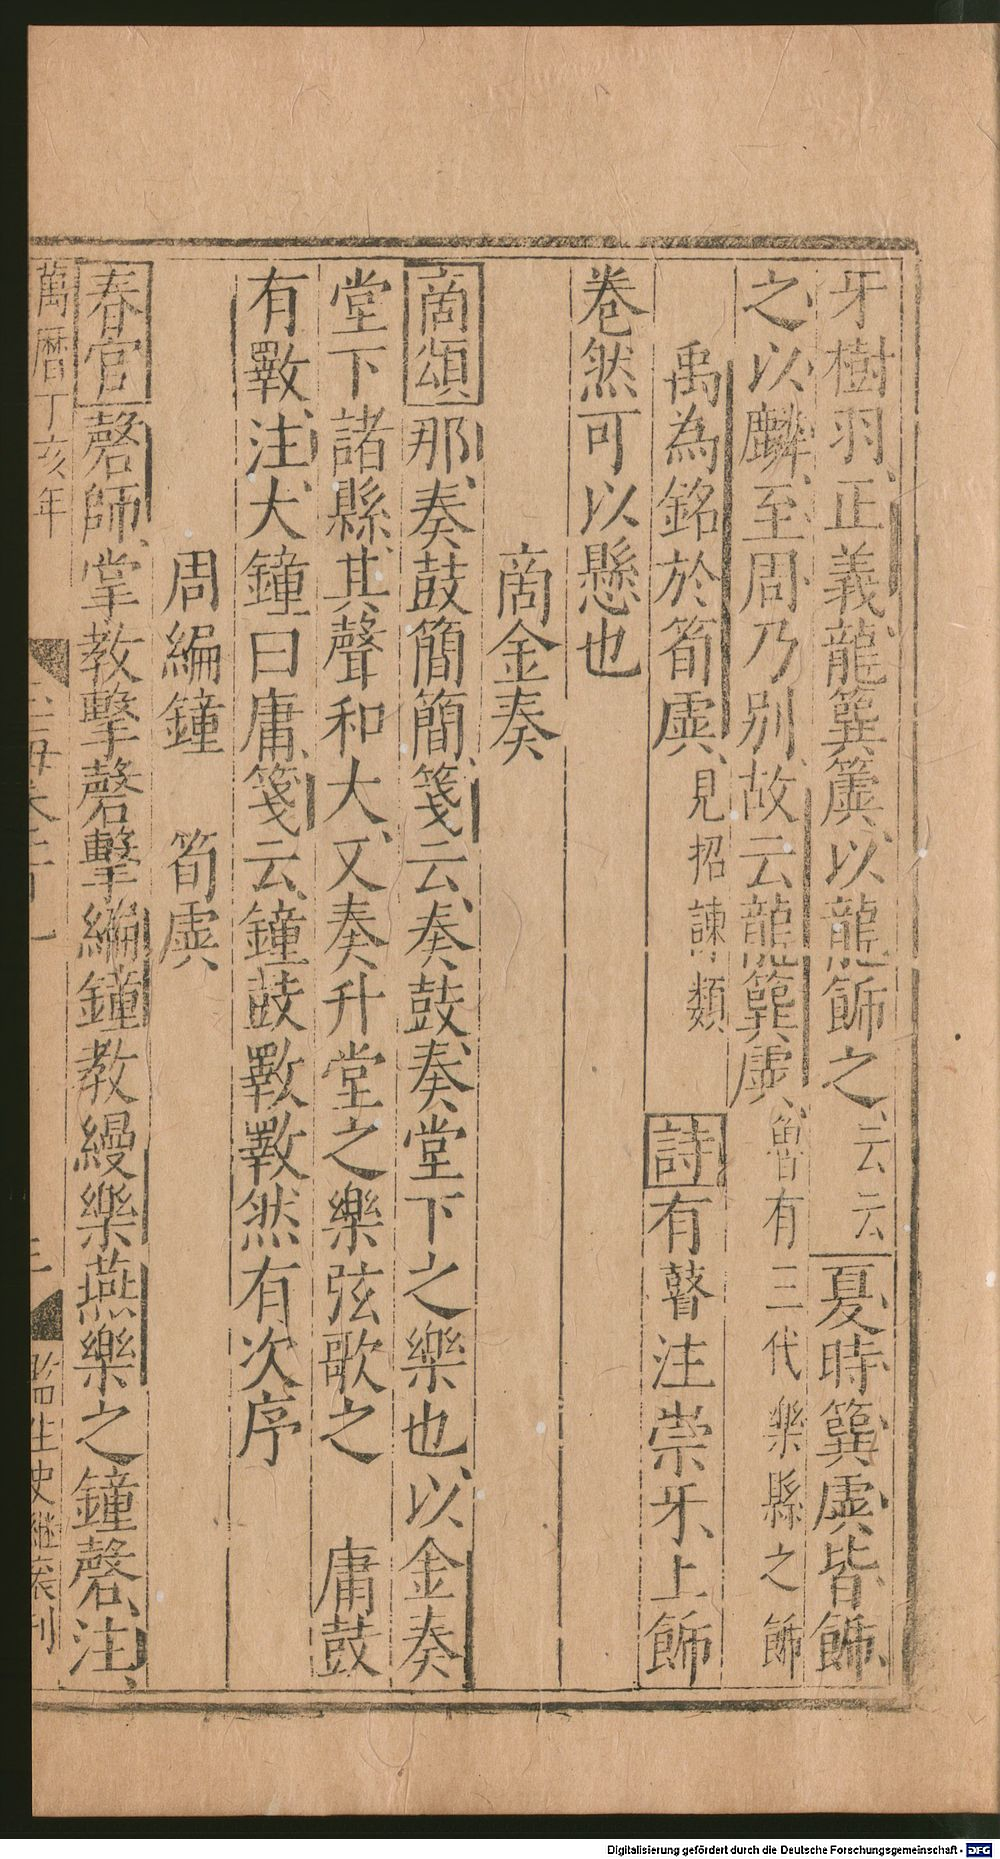 牙樹羽正義龍簨簴以龍飾之云云夏時簨虡皆飾
之以麟至周乃別故云龍簨虡魯有三代樂縣之飾
禹為銘於筍虡見招諫類 詩有瞽注崇牙上飾
卷然可以懸也
商金奏
商頌那奏鼓簡簡箋云奏鼓奏堂下之樂也以金奏
堂下諸縣其聲和大又奏升堂之樂弦歌之 庸鼓
有斁注大鐘曰庸箋云鐘鼓斁斁然有次序
周編鐘 筍虡
春官磬師掌教擊磬擊編鐘教縵樂燕樂之鐘磬注
萬曆丁亥年
監生史繼宸刊
Digitalisierung gefördert durch die Deutsche Forschungsgemeinschaft - DFG